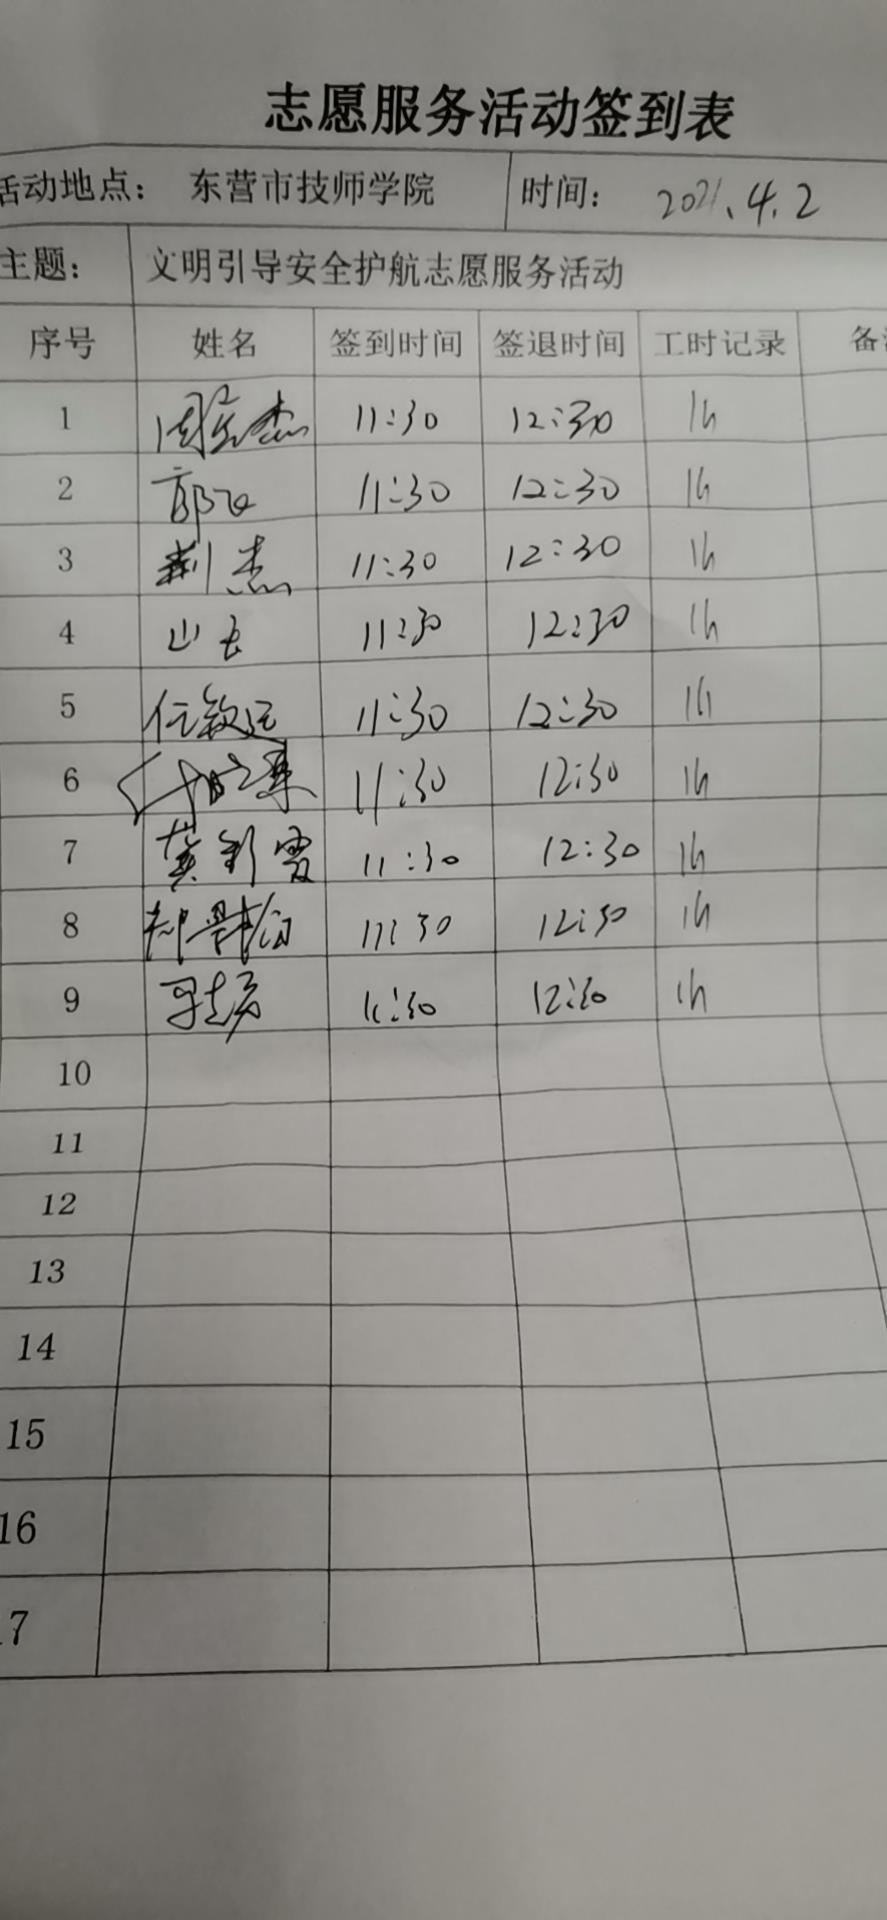 志愿服务活动签到表
活动地点： 东营市技师学院 时间： 2021.4.2
主题： 文明引导安全护航志愿服务活动
序号 姓名 签到时间 签退时间 工时记录 备
1 11:30 12:30 1h
2 郭飞 11:30 12:30 1h
3 荆杰 11:30 12:30 1h
4 11:30 12:30 1h
5 11:30 12:30 1h
6 11:30 12:30 1h
7 龚彩霞 11:30 12:30 1h
8 11:30 12:30 1h
9 11:30 12:30 1h
10
11
12
13
14
15
16
17